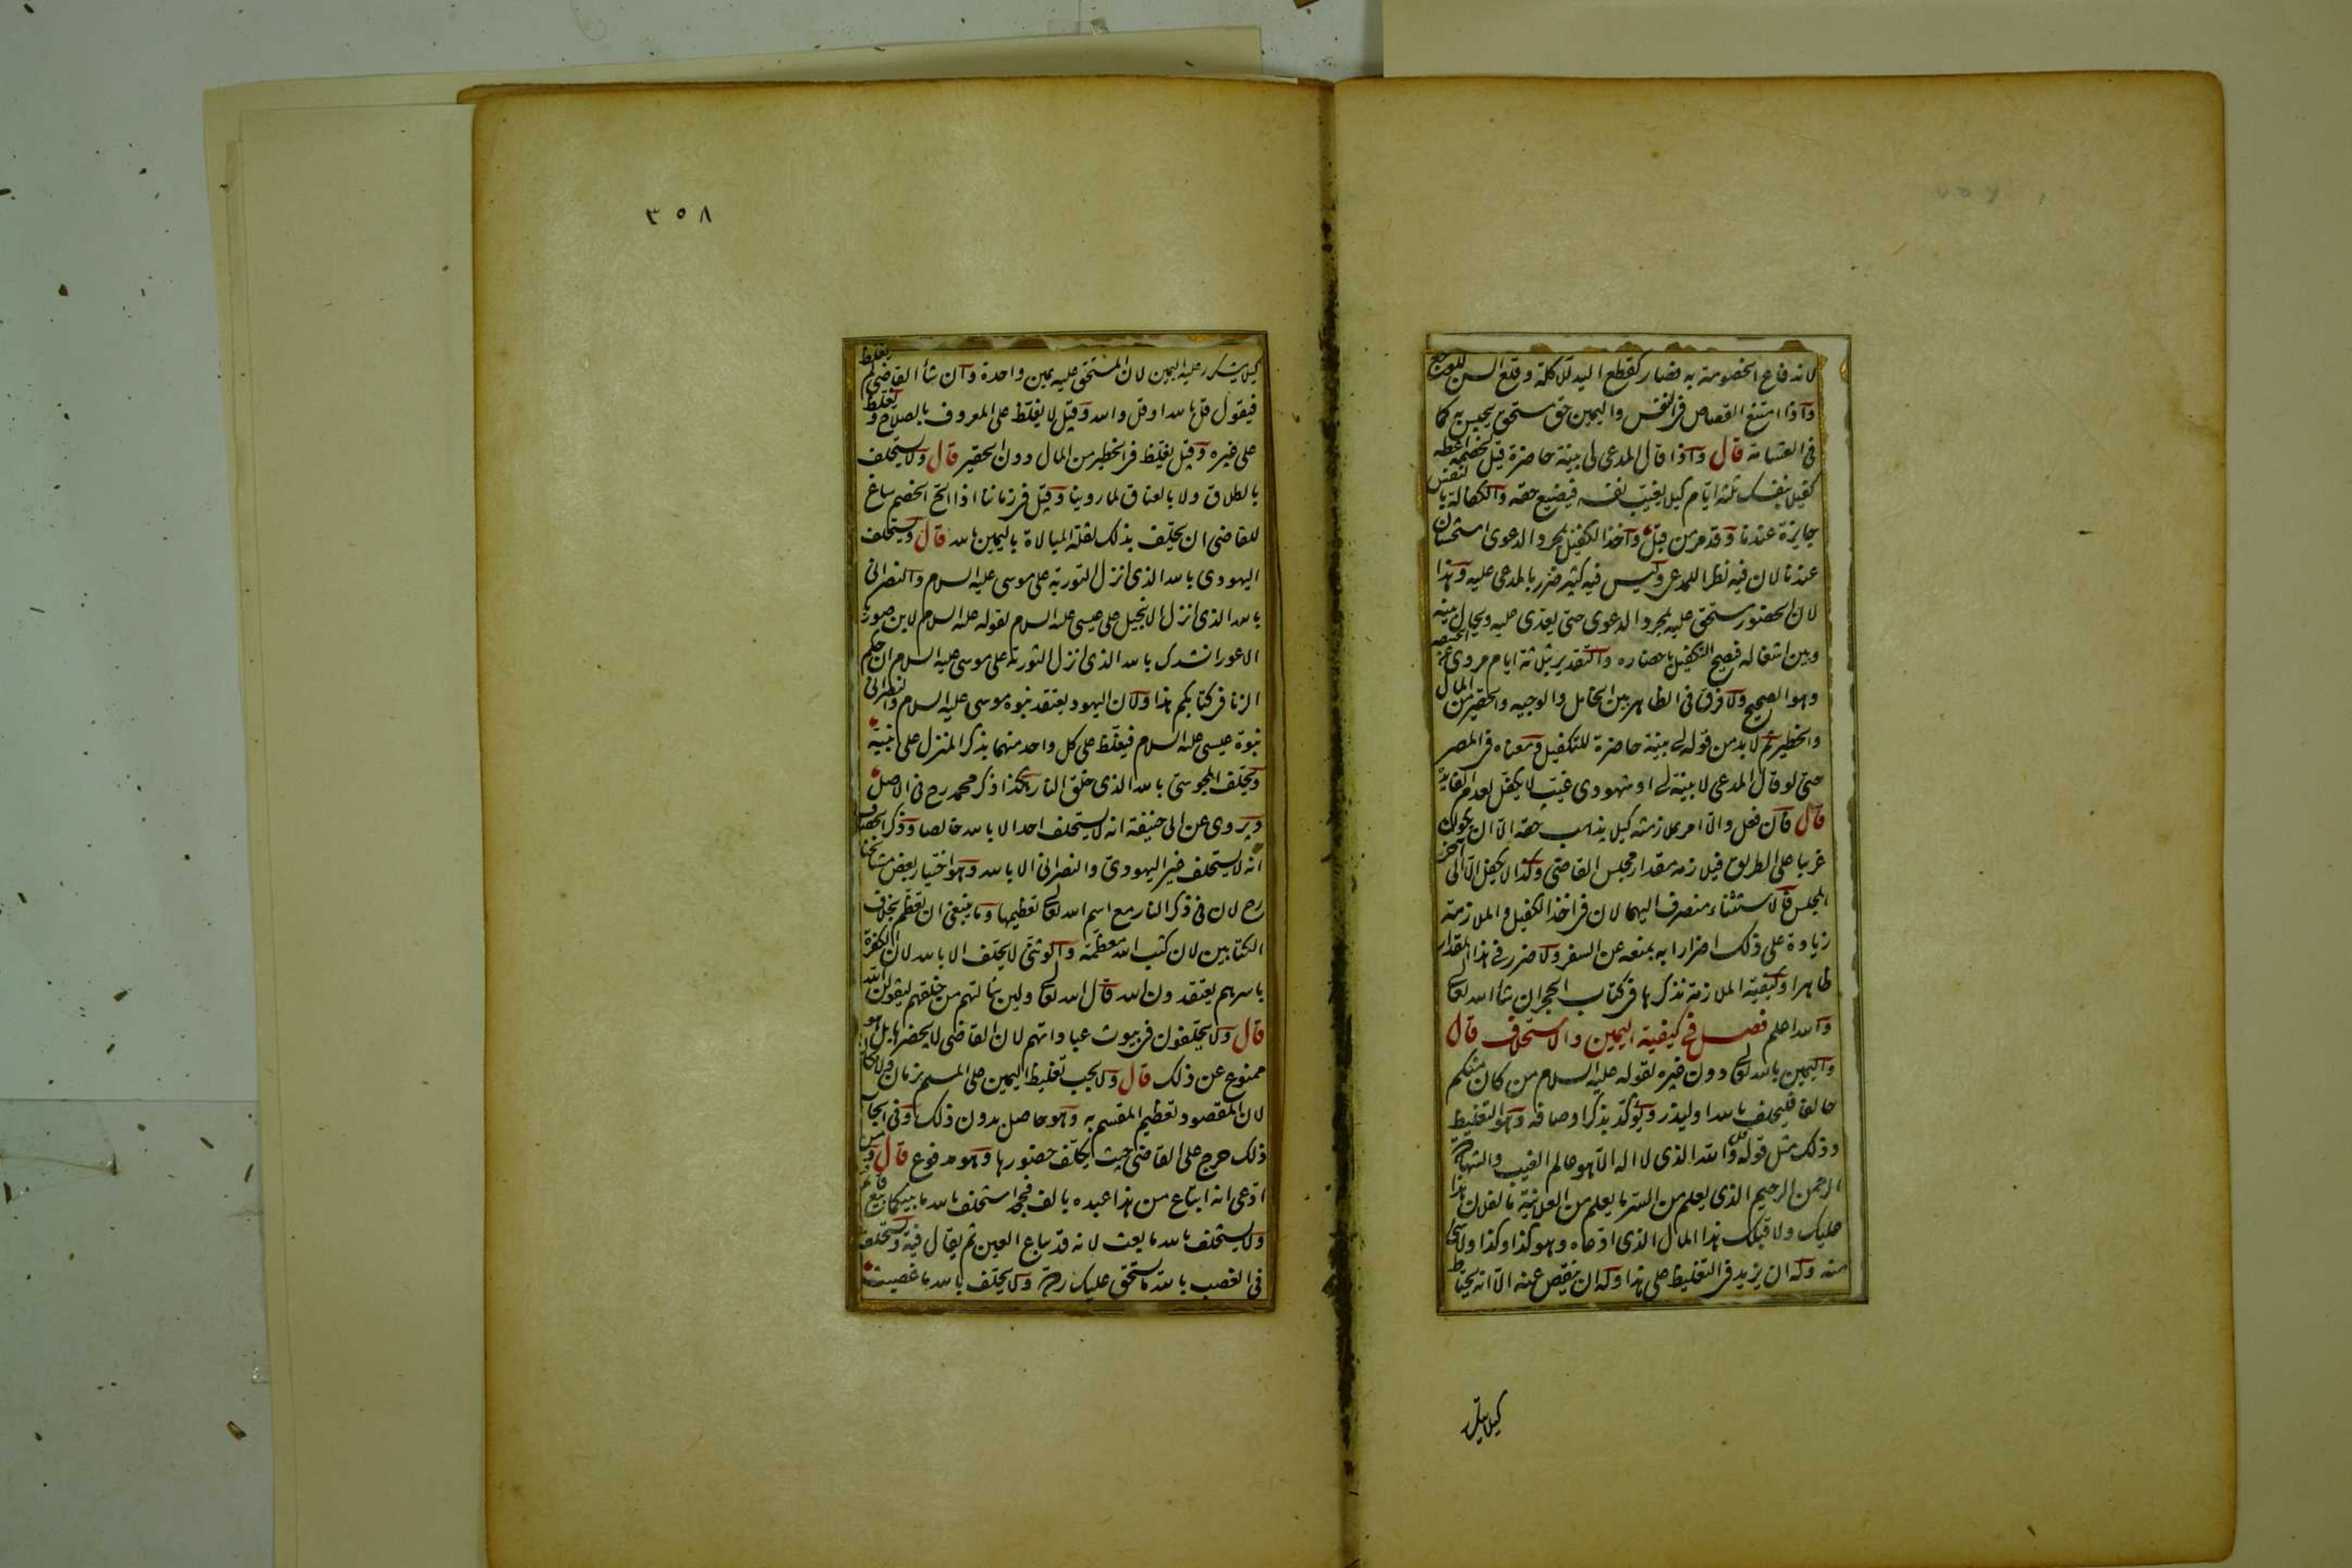 لاندفاع الخصومة به فصار كقطع اليد للاكلة وقلع السن للوجع
واذا امتنع القصاص فى النفس واليمين حق مستحق يحبس به كما
فى القسامة قال واذا قال المدعى لى بينة حاضرة قيل لخصمه اعطه
كفيلا بنفسك ثلثة ايام كيلا يغيب نفسه فيضيع حقه والكفالة بالنفس
جايزة عندنا وقد مر من قبل واخذ الكفيل بمجرد الدعوى استحسان
عندنا لان فيه نظرا للمدعى وليس فيه كثير ضرر بالمدعى عليه وهذا
لان الحضور مستحق عليه بمجرد الدعوى حتى يعدى عليه ويحال بينه
وبين اشغاله فيصح التكفيل باحضاره والتقدير بثلاثة ايام مروى عن ابى حنيفة
وهو الصحيح ولا فرق فى الظاهر بين الخامل والوجيه والحقير من المال
والخطير ثم لا بد من قوله لى بينة حاضرة للتكفيل ومعناه فى المصر
حتى لو قال المدعى لا بينة لى او شهودى غيب لا يكفل لعدم الفايدة
قال فان فعل والا امر بملازمته كيلا يذهب حقه الا ان يكون
غريبا على الطريق فيلازمه مقدار مجلس القاضى وكذا لا يكفل الا الى آخر
المجلس فالاستثناء منصرف اليهما لان فى اخذ الكفيل والملازمة
زيادة على ذلك اضرارا به بمنعه عن السفر ولا ضرر فى هذا المقدار
ظاهرا وكيفية الملازمة نذكرها فى كتاب الحجر ان شاء الله تعالى
والله اعلم فصل فى كيفية اليمين والاستحلاف قال
واليمين بالله تعالى دون غيره لقوله عليه السلام من كان منكم
حالفا فليحلف بالله او ليذر ويؤكد بذكر اوصافه وهو التغليظ
وذلك مثل قوله قل والله الذى لا اله الا هو عالم الغيب والشهادة
الرحمن الرحيم الذى يعلم من السر ما يعلم من العلانية ما لفلان هذا
عليك ولا قبلك هذا المال الذى ادعاه وهو كذا وكذا ولا شى
منه وله ان يزيد فى التغليظ على هذا وله ان ينقص عنه الا انه يحتاط
كيلا يتكرر
٣٥٨
كيلا يتكرر عليه اليمين لان المستحق عليه يمين واحدة وان شأ القاضى لم يغلظ
فيقول قل بالله او قل والله وقيل لا يغلظ على المعروف بالصلاح ويغلظ
على غيره وقيل يغلظ فى الخطير من المال دون الحقير قال ولا يستحلف
بالطلاق ولا بالعتاق لما روينا وقيل فى زماننا اذا الح الخصم ساغ
للقاضى ان يحلف بذلك لقلة المبالاة باليمين بالله قال ويستحلف
اليهودى بالله الذى انزل التورية على موسى عليه السلام والنصرانى
بالله الذى انزل الانجيل على عيسى عليه السلام لقوله عليه السلام لابن صوريا
الاعور انشدك بالله الذى انزل التورية على موسى عليه السلام ان حكم
الزنا فى كتابكم هذا ولان اليهود يعتقد نبوة موسى عليه السلام والنصرانى
نبوة عيسى عليه السلام فيغلظ على كل واحد منهما بذكر المنزل على نبيه
ويحلف المجوسى بالله الذى خلق النار هكذا ذكر محمد رح فى الاصل
ويروى عن ابى حنيفة انه لا يستحلف احدا الا بالله خالصا وذكر الخصاف
انه لا يستحلف غير اليهودى والنصرانى الا بالله وهو اختيار بعض مشايخنا
رح لان فى ذكر النار مع اسم الله تعالى تعظيمها وما ينبغى ان تعظم بخلاف
الكتابين لان كتب الله معظمة والوثنى لا يحلف الا بالله لان الكفرة
باسرهم يعتقدون الله قال الله تعالى ولين سالتهم من خلقهم ليقولن الله
قال ولا يحلفون فى بيوت عباداتهم لان القاضى لا يحضرها بل هو
ممنوع عن ذلك قال ولا يجب تغليظ اليمين على المسلم بزمان ولا مكان
لان المقصود تعظيم المقسم به وهو حاصل بدون ذلك وفى ايجاب
ذلك حرج على القاضى حيث يكلف حضورها وهو مدفوع قال ومن
ادعى انه ابتاع من هذا عبده بالف فجحد استحلف بالله ما بينكما بيع قايم
ولا يستحلف بالله ما بعت لانه قد يباع العين ثم يقال فيه ويستحلف
فى الغصب بالله ما يستحق عليك رده ولا يحلف بالله ما غصبت